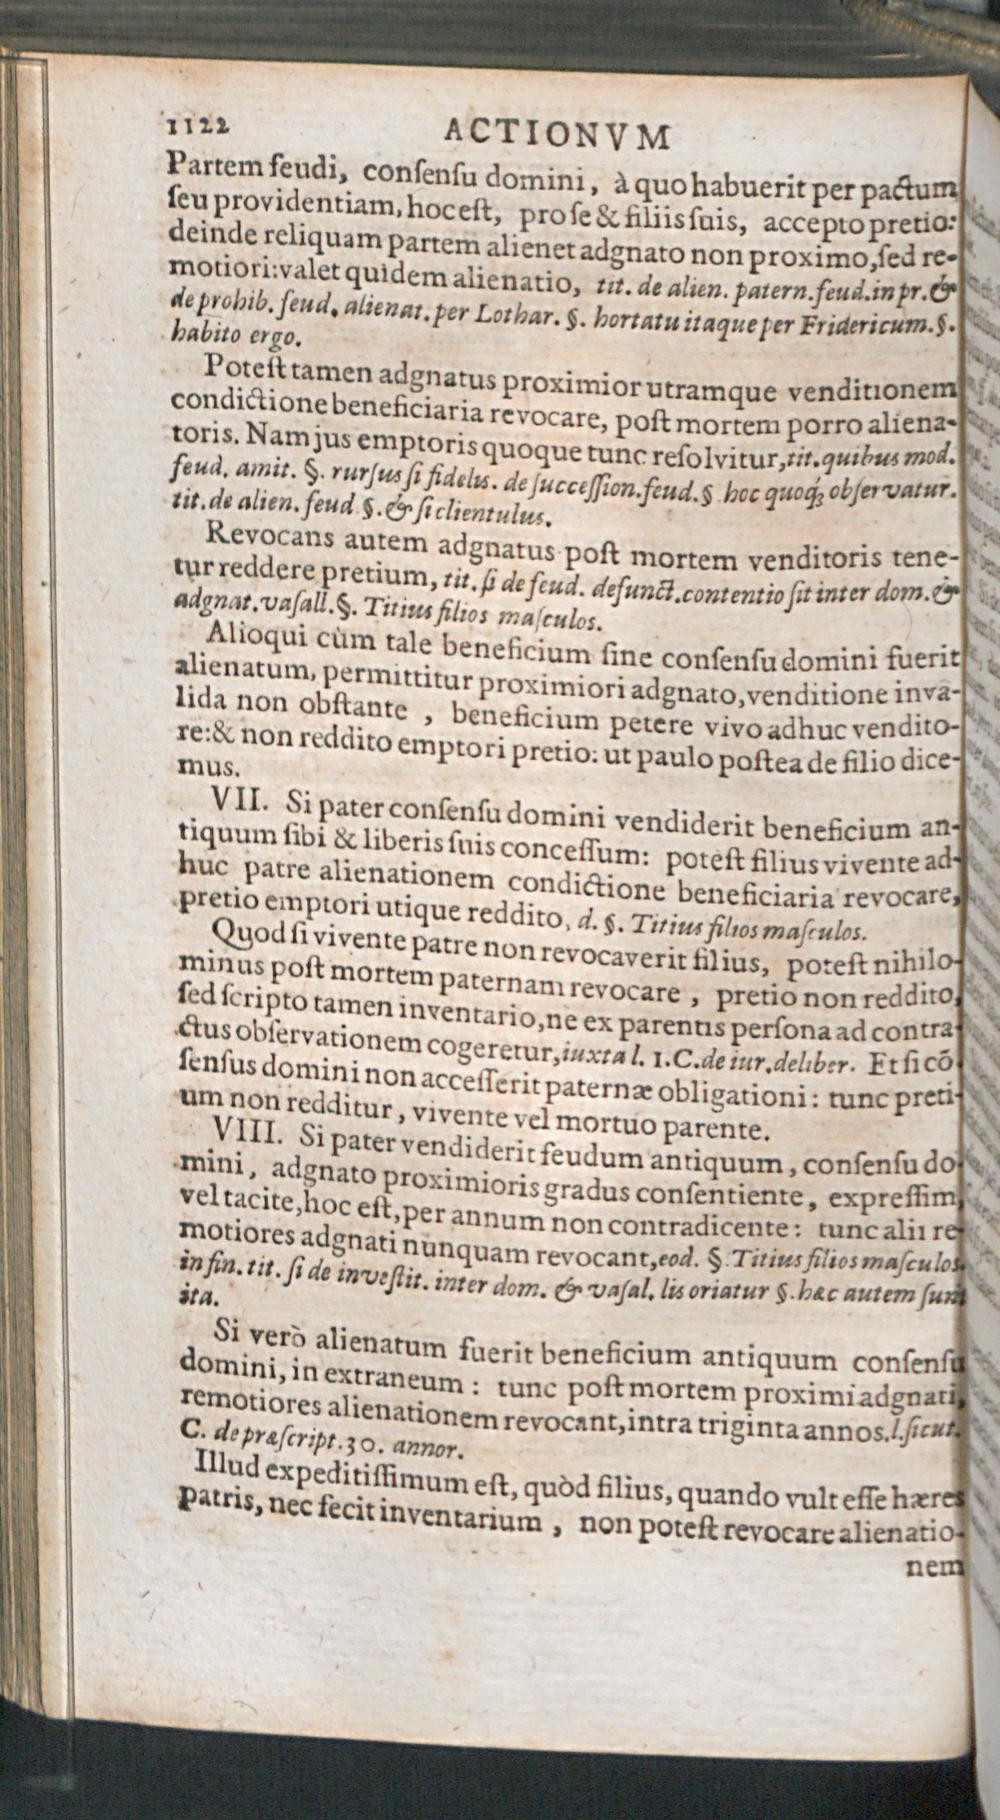 1122 ACTIONVM
Partem feudi, conſenſu domini, à quo habuerit per pactum,
ſeu providentiam, hoc eſt, pro ſe & filiis ſuis, accepto pretio:
deinde reliquam partem alienet adgnato non proximo, ſed re-
motiori: valet quidem alienatio, tit. de alien. patern. feud. in pr. &
de prohib. feud. alienat. per Lothar. §. hortatu itaque per Fridericum. §.
habito ergo.
Poteſt tamen adgnatus proximior utramque venditionem
condictione beneficiaria revocare, poſt mortem porro aliena-
toris. Nam jus emptoris quoque tunc reſolvitur, tit. quibus mod.
feud. amit. §. rurſus ſi fidelis. de ſucceſſion. feud. § hoc quoq́; obſervatur.
tit. de alien. feud §. & ſi clientulus.
Revocans autem adgnatus poſt mortem venditoris tene-
tur reddere pretium, tit. ſi de feud. defunct. contentio ſit inter dom. &
adgnat. vaſall. §. Titius filios maſculos.
Alioqui cùm tale beneficium ſine conſenſu domini fuerit
alienatum, permittitur proximiori adgnato, venditione inva-
lida non obſtante , beneficium petere vivo adhuc vendito-
re: & non reddito emptori pretio: ut paulo poſtea de filio dice-
mus.
VII. Si pater conſenſu domini vendiderit beneficium an-
tiquum ſibi & liberis ſuis conceſſum: poteſt filius vivente ad-
huc patre alienationem condictione beneficiaria revocare,
pretio emptori utique reddito, d. §. Titius filios maſculos.
Quod ſi vivente patre non revocaverit filius, poteſt nihilo-
minus poſt mortem paternam revocare , pretio non reddito,
ſed ſcripto tamen inventario, ne ex parentis perſona ad contra-
ctus obſervationem cogeretur, iuxta l. 1. C. de iur. deliber. Et ſi cõ-
ſenſus domini non acceſſerit paternæ obligationi: tunc preti-
um non redditur, vivente vel mortuo parente.
VIII. Si pater vendiderit feudum antiquum, conſenſu do-
mini, adgnato proximioris gradus conſentiente, expreſſim,
vel tacite, hoc eſt, per annum non contradicente: tunc alii re-
motiores adgnati nunquam revocant, eod. §. Titius filios maſculos.
in fin. tit. ſi de inveſtit. inter dom. & vaſal. lis oriatur §. hæc autem ſunt
ita.
Si verò alienatum fuerit beneficium antiquum conſenſu
domini, in extraneum : tunc poſt mortem proximi adgnati,
remotiores alienationem revocant, intra triginta annos. l. ſicut.
C. de præſcript. 30. annor.
Illud expeditiſſimum eſt, quòd filius, quando vult eſſe hæres
patris, nec fecit inventarium , non poteſt revocare alienatio-
nem